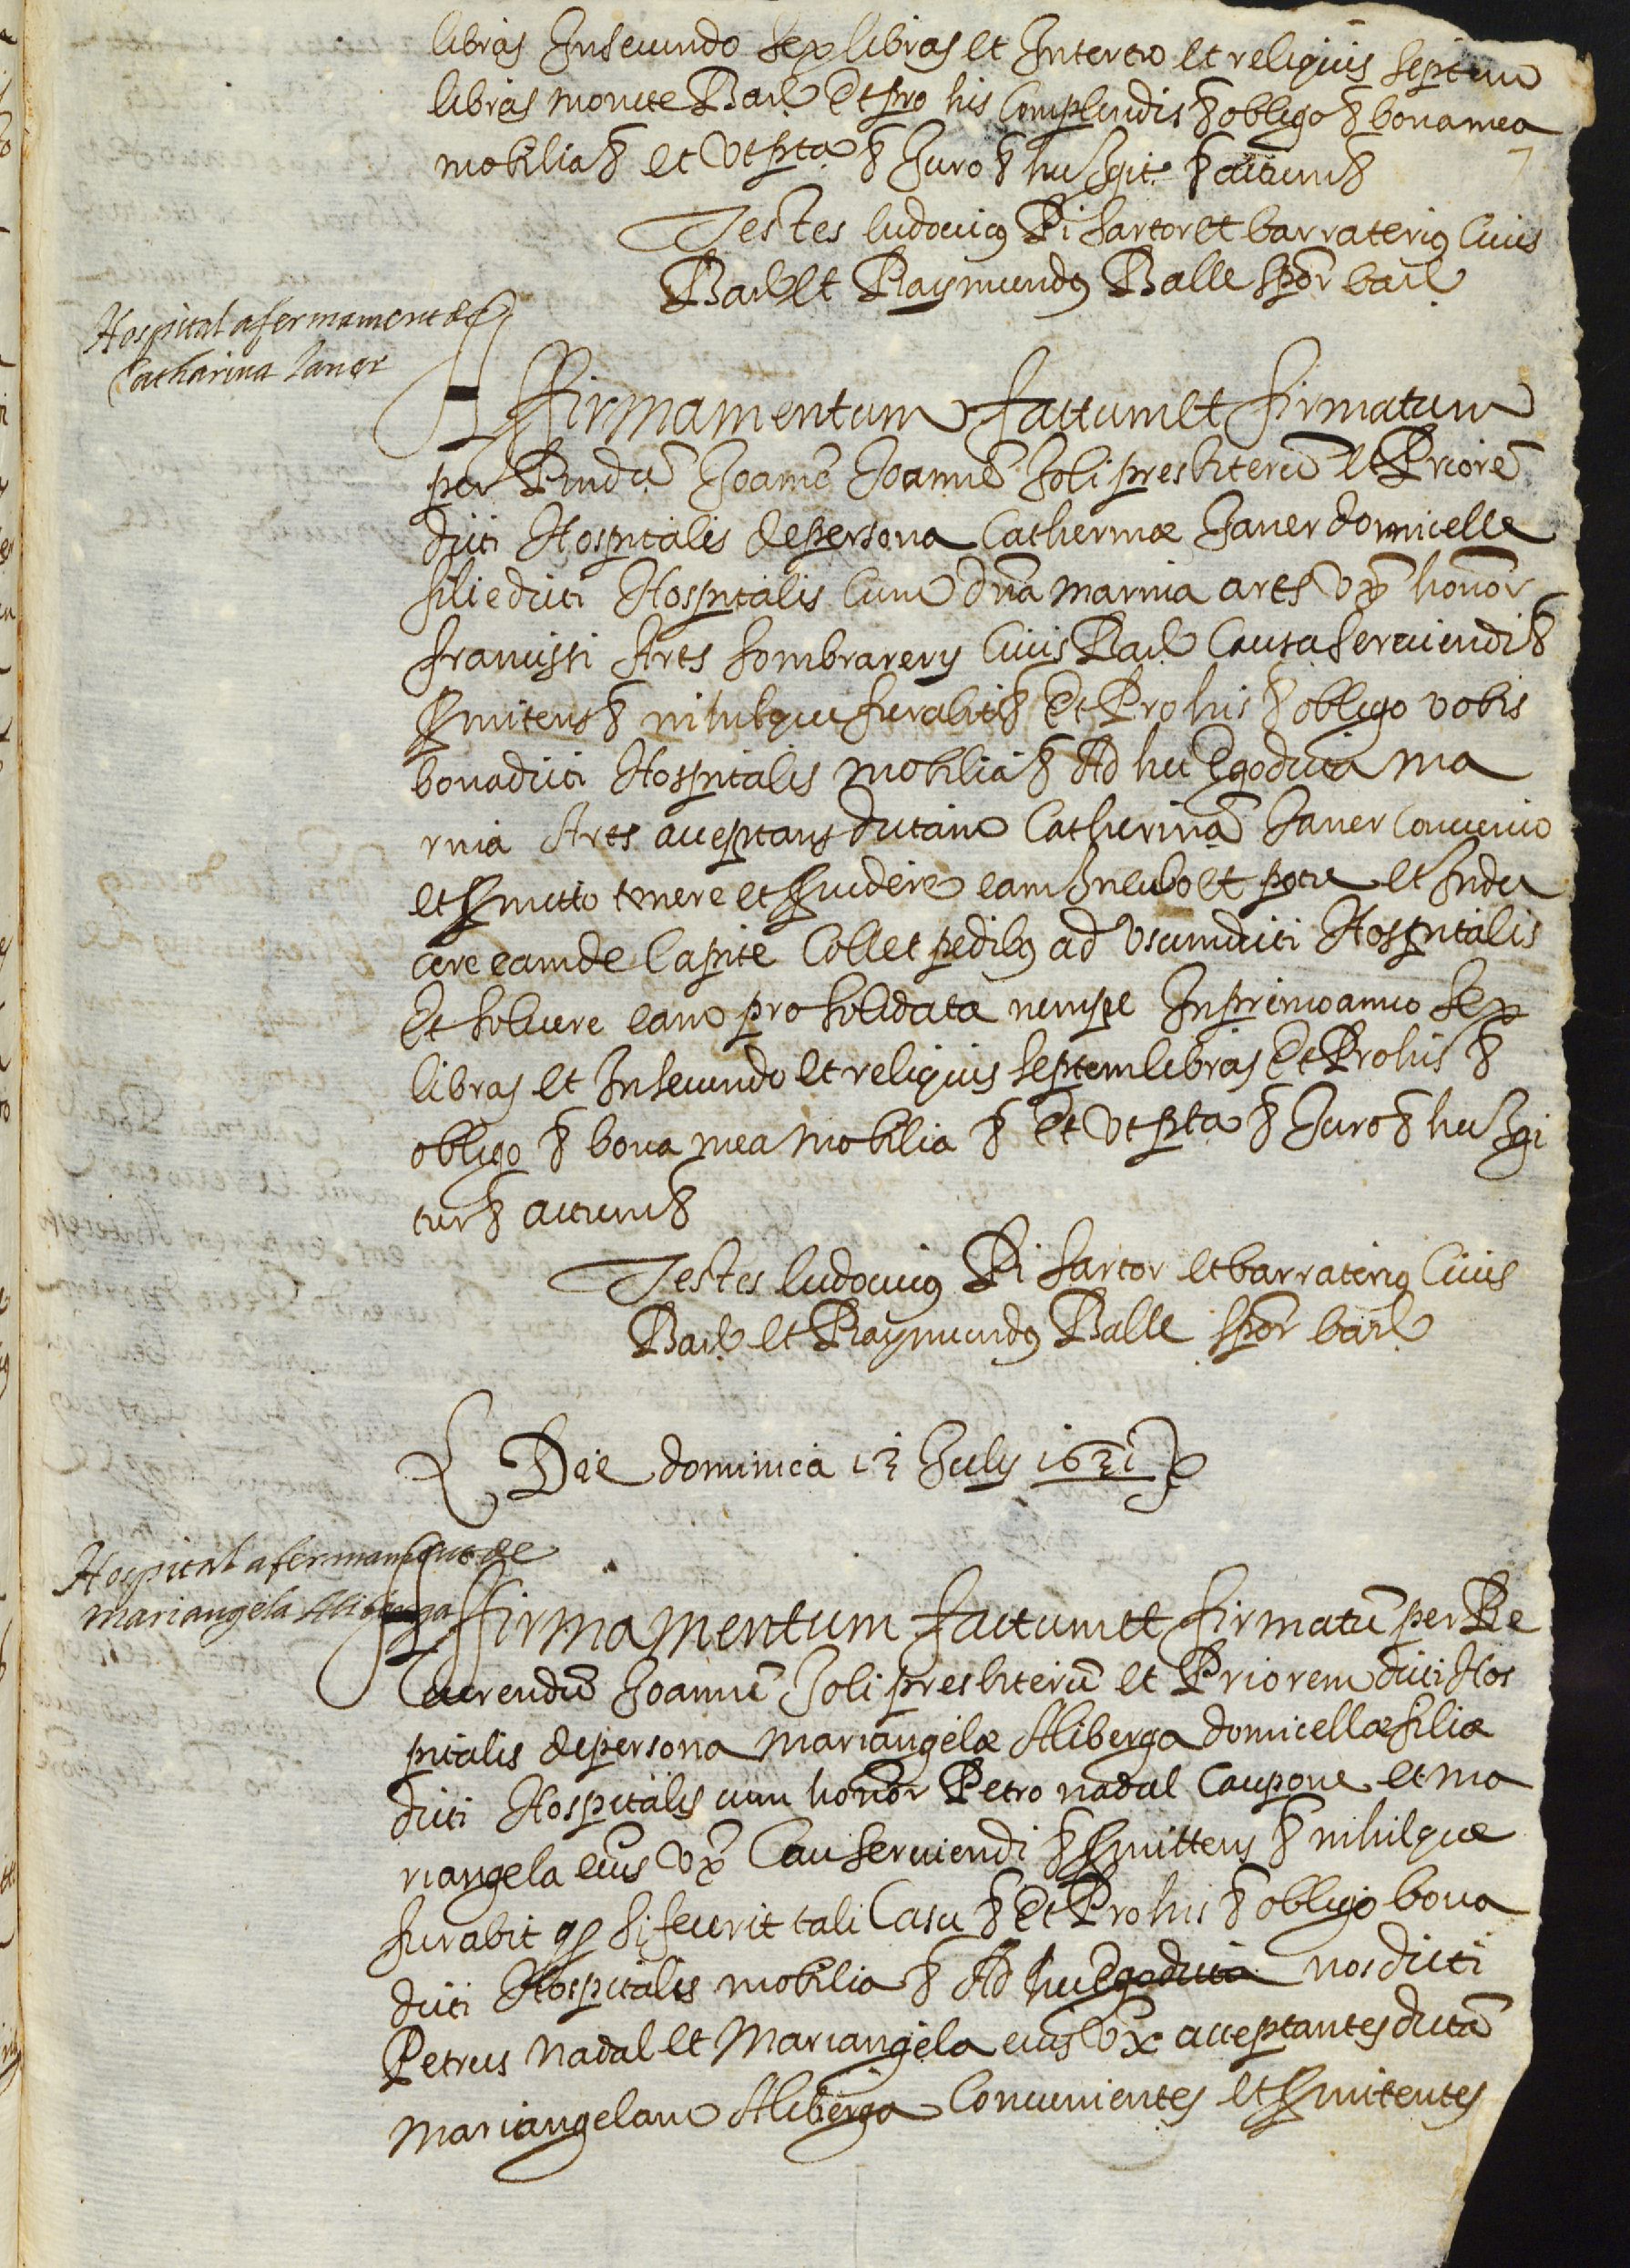 libras In secundo sex libras et In tertio et reliquis septem
libras monete Barᵉ Et pro his Complendis & obligo & bona mea
mobilia & et Ut pta & Juro & huJgit & actum &
Testes ludouicus Pi Sartor et barraterius Ciuis
Barᵉ et Raymundus Balle Spor barᵉ
Hospital afermament de
Catharina Janer
Affirmamentum factum et firmatum
per Rndũ Joanẽ Joannẽ Joli presbiterũ et Priorẽ
dicti Hospitalis de persona Catherinæ Janer domicelle
filie dicti Hospitalis Cum dña marina arts Vxᵉ honor
francissi Arts sombrarery Ciuis Barᵉ Causa seruiendi &
Pmitens & nihilque furabit & Et Pro his & obligo vobis
bona dicti Hospitalis mobilia & Ad hec Ego dicta ma
rina Arts acceptans dictam Catherinã Janer Conuenio
et Pmitto tenere et Puidere eam In cibo et potu et Indu
cere eam de Capite Collet pedibus ad Usum dicti Hospitalis
Et soluere eam pro solidata nempe In primo anno sex
libras et In secundo et reliquis septem libras Et Pro his &
obligo & bona mea mobilia & Et Ut pta & Juro & hu Jgi
tur & actum &
Testes ludouicus Pi Sartor et barraterius Ciuis
Barᵉ et Raymundus Balle Spor barᵉ
Die dominica 13 July 1631
Hospital afermament de
mariangela Aliberga
Affirmamentum factum et firmatũ per Re
uerendũ Joannẽ Joli presbiterũ et Priorem dicti Hos
pitalis de persona mariangelæ Aliberga domicellæ filiæ
dicti Hospitalis cum honor Petro nadal Caupone et ma
riangela eius vxᵉ Cau seruiendi & Pmittens & nihilque
furabit qd si fecerit tali Casu & Et Pro his & obligo bona
dicti Hospitalis mobilia & Ad hec Ego dicta nos dicti
Petrus Nadal et Mariangela eius Vx acceptantes dictã
Mariangelam Aliberga Conuenientes et Pmitentes